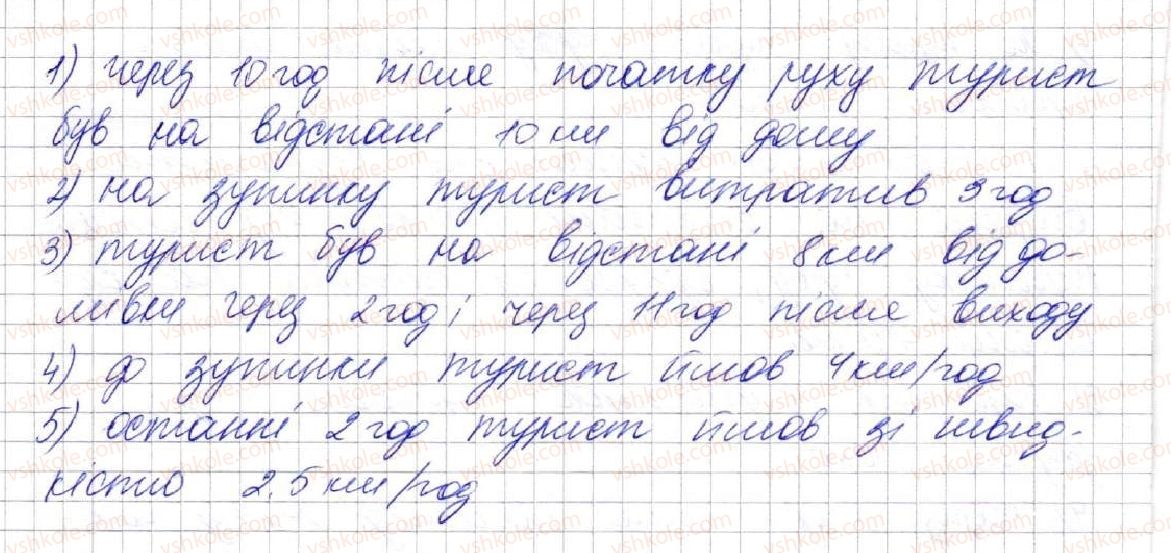 1) через 10 год після початку руху турист
був на відстані 10 км від дому
2) на зупинку турист витратив 3 год
3) турист був на відстані 8 км від до-
мівки через 2 год і через 11 год після виходу
4) до зупинки турист йшов 4 км/год
5) останні 2 год турист йшов зі швид-
кістю 2,5 км/год